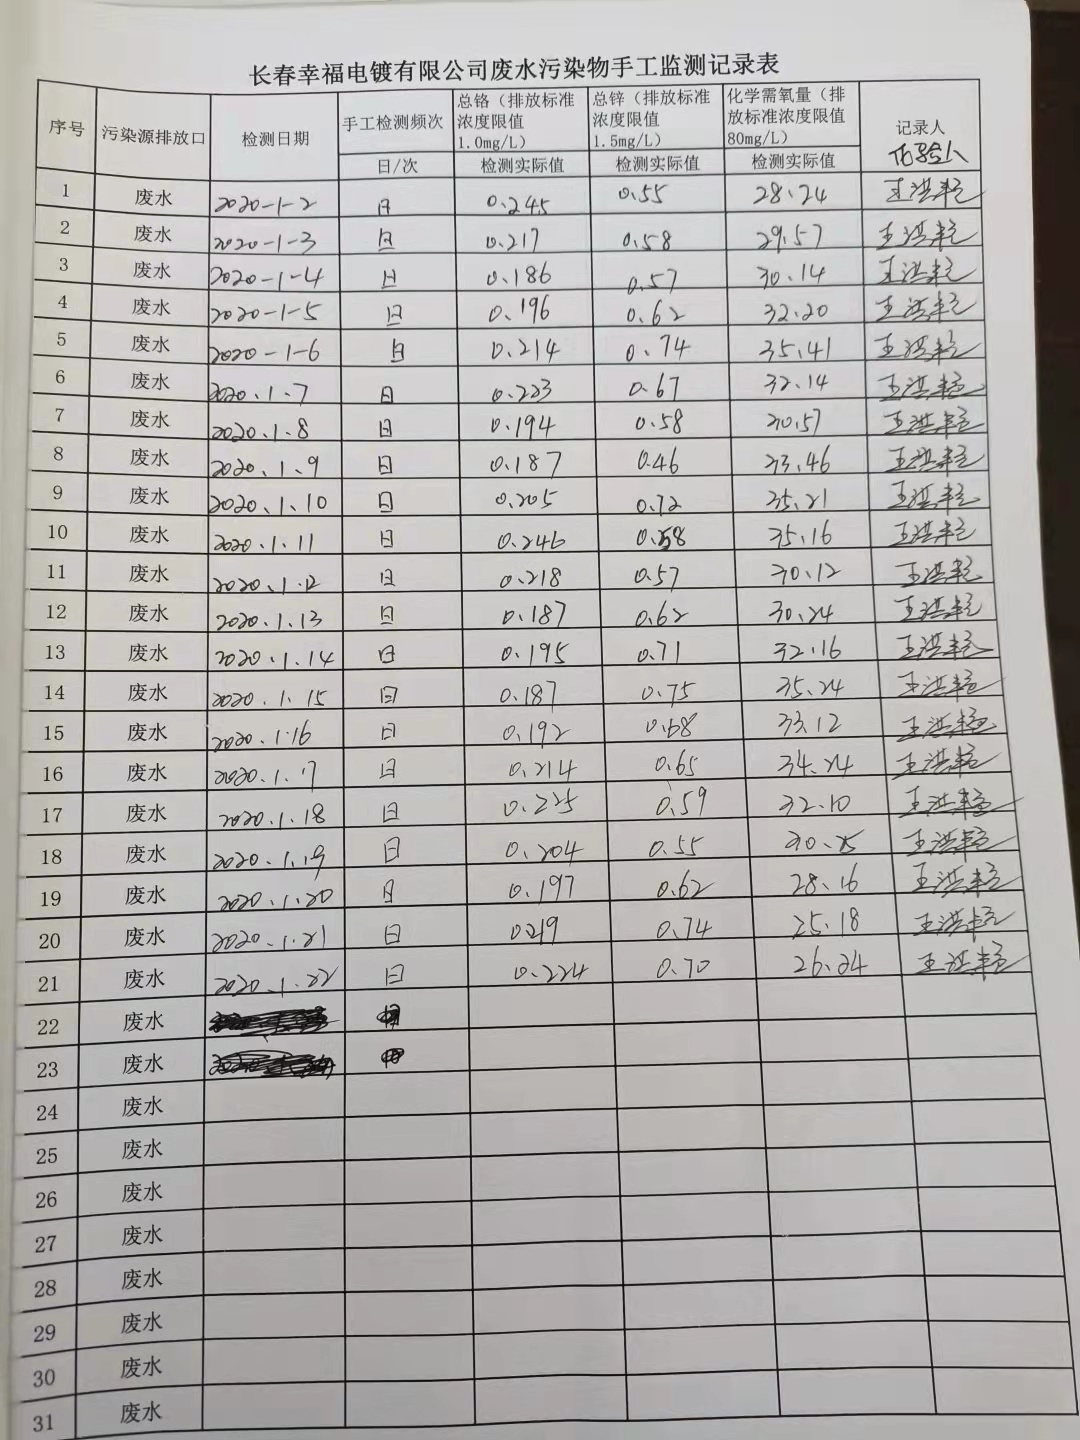 长春幸福电镀有限公司废水污染物手工监测记录表
序号 污染源排放口 检测日期 手工检测频次 总铬（排放标准浓度限值1.0mg/L） 总锌（排放标准浓度限值1.5mg/L） 化学需氧量（排放标准浓度限值80mg/L） 记录人
化验人
日/次 检测实际值 检测实际值 检测实际值
1 废水 2020-1-2 日 0.245 0.55 28.24
2 废水 2020-1-3 日 0.217 0.58 29.57
3 废水 2020-1-4 日 0.186 0.57 30.14
4 废水 2020-1-5 日 0.196 0.62 32.20
5 废水 2020-1-6 日 0.214 0.74 35.41
6 废水 2020.1.7 日 0.223 0.67 32.14
7 废水 2020.1.8 日 0.194 0.58 30.57
8 废水 2020.1.9 日 0.187 0.46 33.46
9 废水 2020.1.10 日 0.205 0.72 35.21
10 废水 2020.1.11 日 0.246 0.58 35.16
11 废水 2020.1.12 日 0.218 0.57 30.12
12 废水 2020.1.13 日 0.187 0.62 30.24
13 废水 2020.1.14 日 0.195 0.71 32.16
14 废水 2020.1.15 日 0.187 0.75 35.24
15 废水 2020.1.16 日 0.192 0.68 33.12
16 废水 2020.1.17 日 0.214 0.65 34.24
17 废水 2020.1.18 日 0.225 0.59 32.10
18 废水 2020.1.19 日 0.204 0.55
19 废水 2020.1.20 日 0.197 0.62 28.16
20 废水 2020.1.21 日 0.219 0.74 25.18
21 废水 2020.1.22 日 0.224 0.70 26.24
22 废水
23 废水
24 废水
25 废水
26 废水
27 废水
28 废水
29 废水
30 废水
31 废水